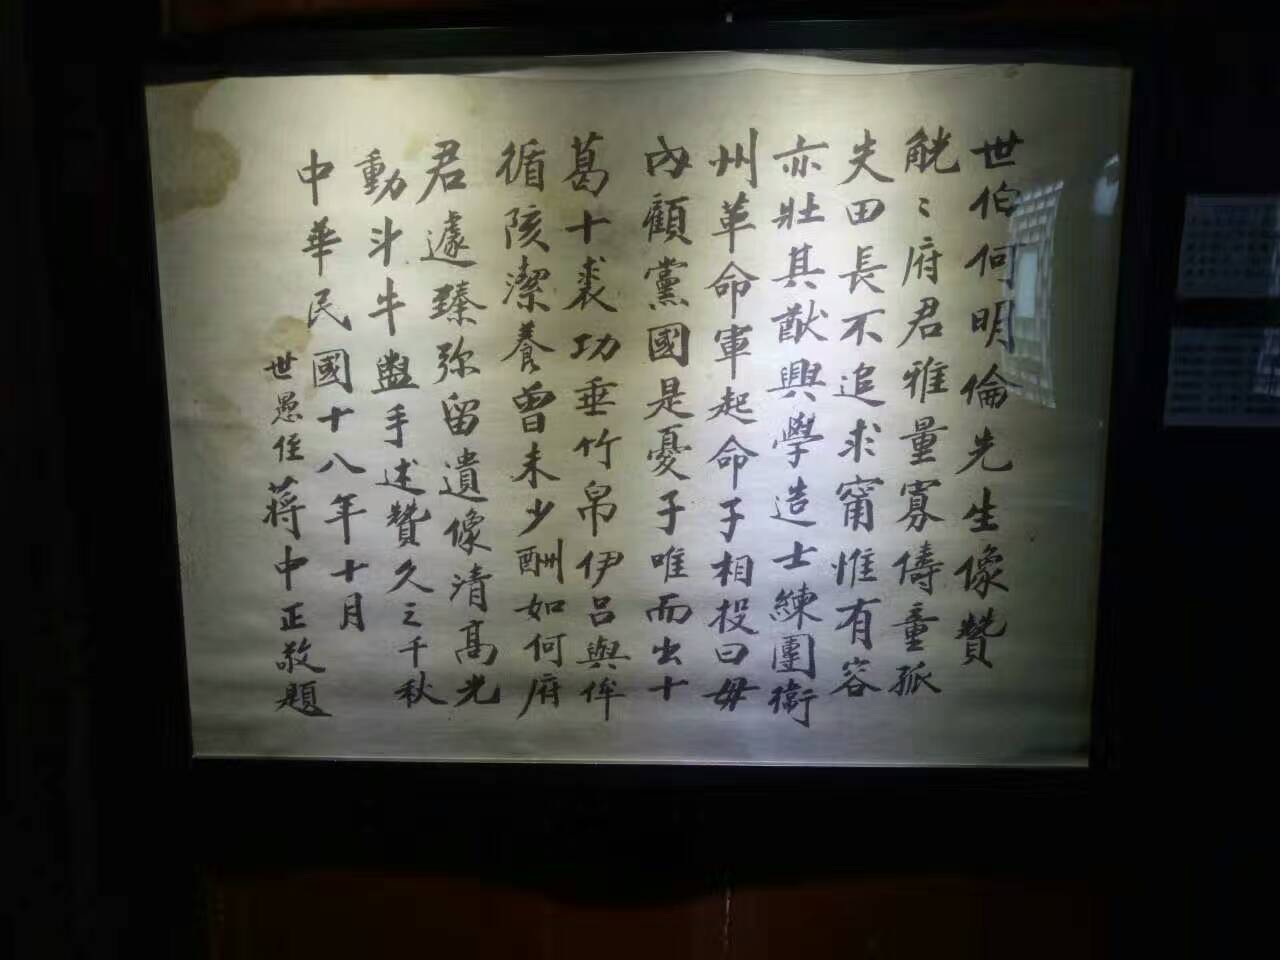 世伯何明倫先生像贊
觥〻府君雅量寡儔童孤
失田長不追求甯惟有容
亦壯其猷興學造士練團衛
州革命軍起命子相投曰毋
內顧黨國是憂子唯而出十
葛十裘功垂竹帛伊呂與侔
循陔潔養曾未少酬如何府
君遽臻弥留遺像清高光
動斗牛盥手述贊久之千秋
中華民國十八年十月
世愚侄蔣中正敬題